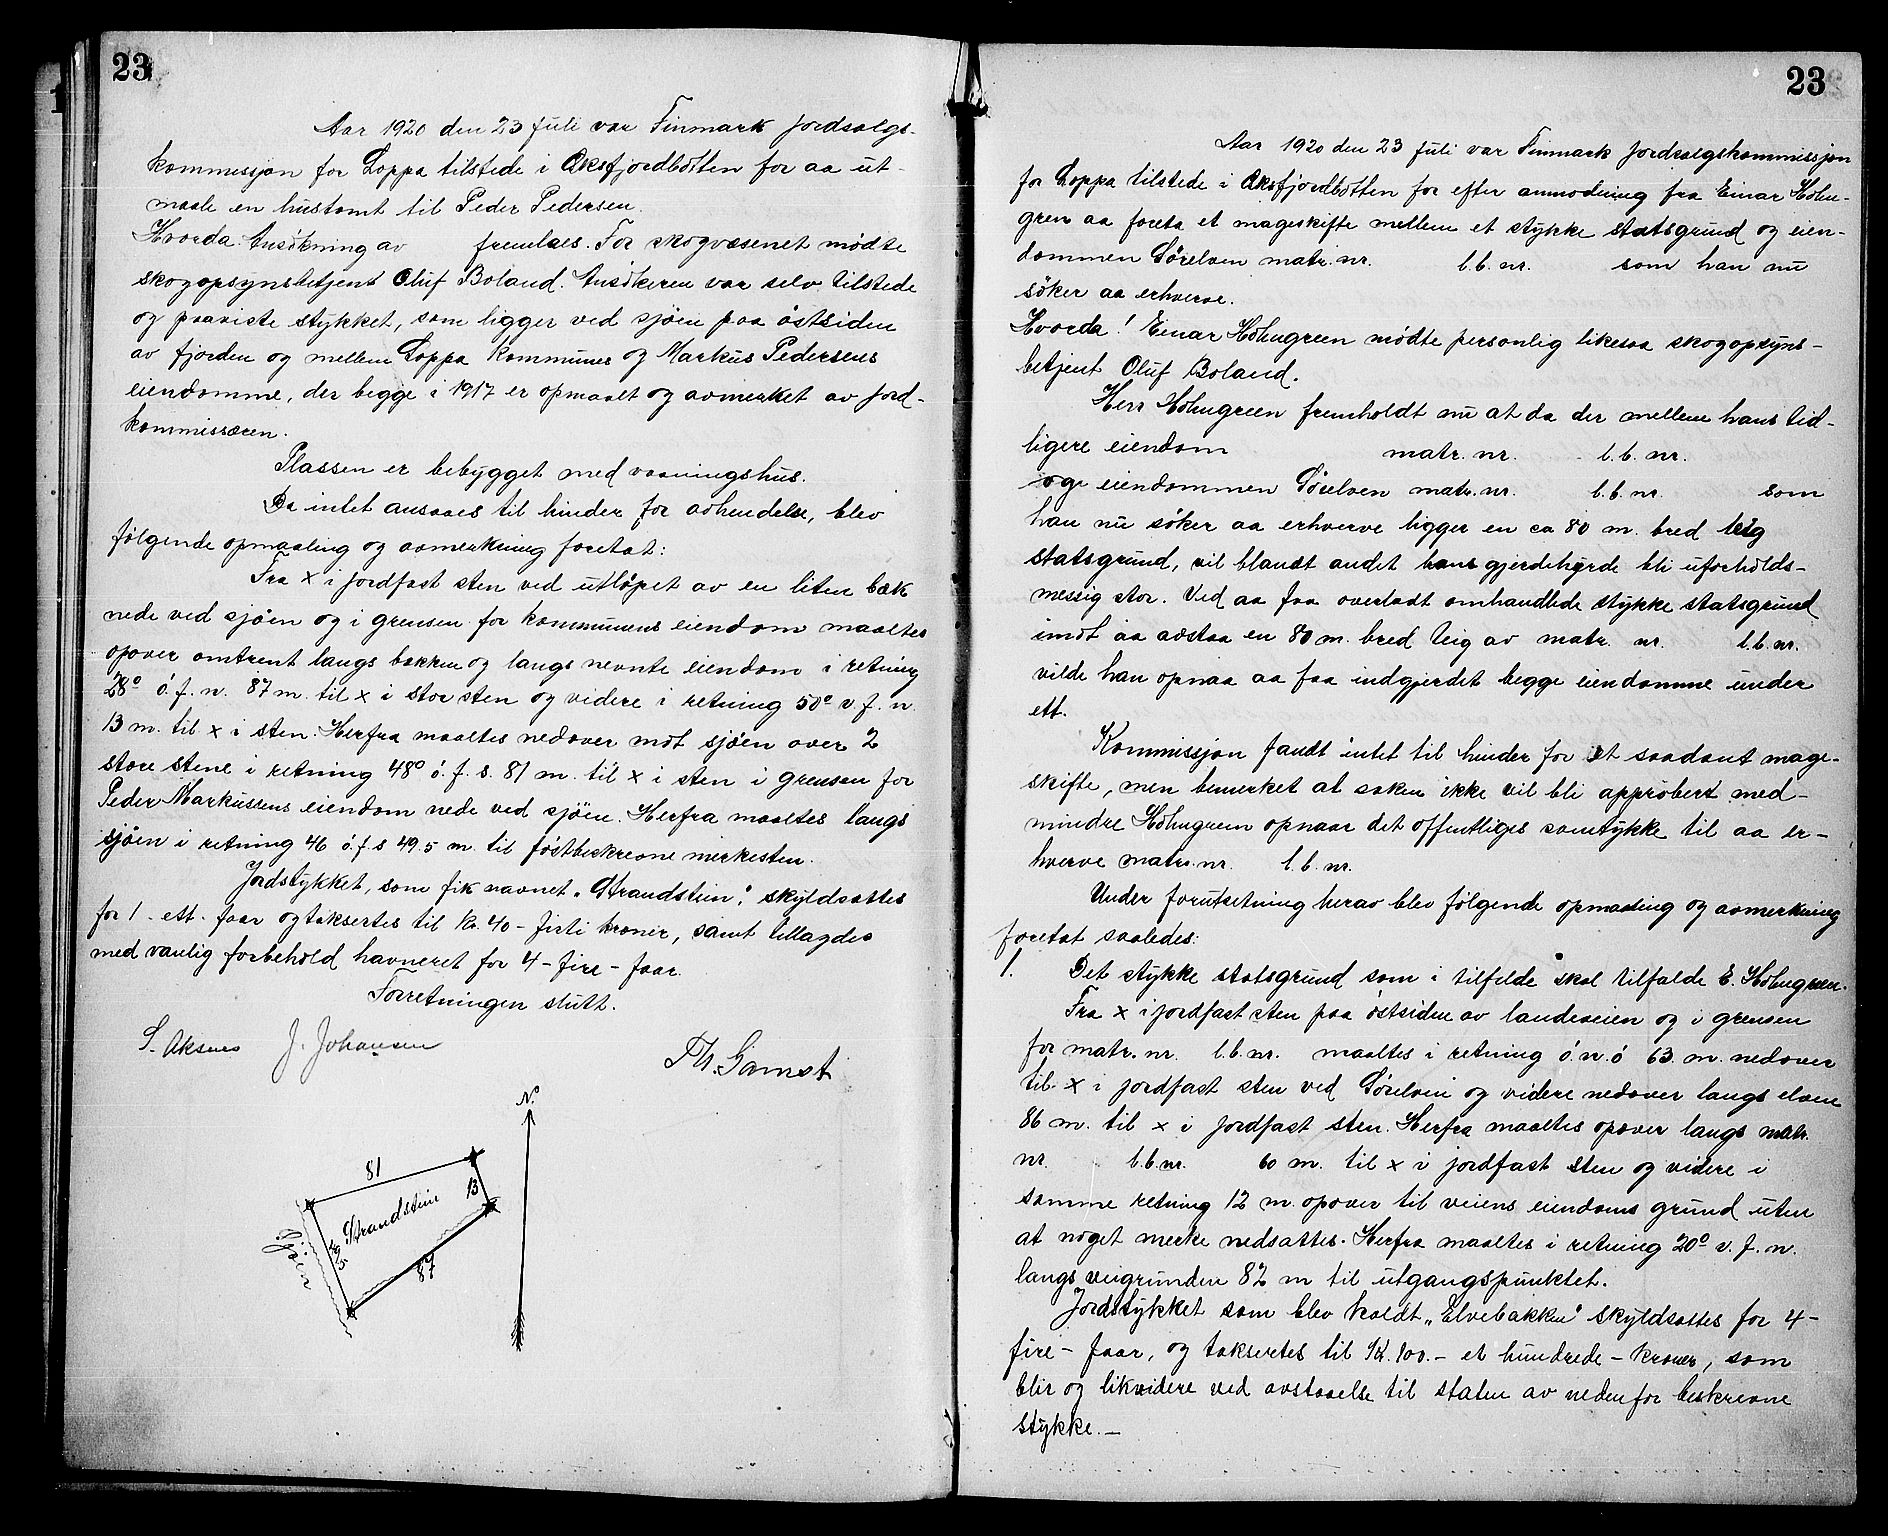 23
Aar 1920 den 23 juli var Finmark jordsalgs-
kommissjon for Loppa tilstede i Øksfjordbotten for aa ut-
maale en hustomt til Peder Pedersen.
Hvorda: Ansøkning av fremlaes. For skogvæsenet mødte
skogopsynsbetjent Oluf Boland. Ansøkeren var selv tilstede
og paaviste stykket, som ligger ved sjøen paa østsiden
av fjorden og mellem Loppa kommunes og Markus Pedersens
eiendomme, der begge i 1917 er opmaalt og avmerket av jord-
kommissæren.
Plassen er bebygget med vaaningshus.
Da intet ansaaes til hinder for avhendelse, blev
følgende opmaaling og avmerkning foretat:
Fra x i jordfast sten ved utløpet av en liten bæk
nede ved sjøen og i grensen for kommunens eiendom maaltes
opover omtrent langs bækken og langs nevnte eiendom i retning
28° ø. f. n. 87 m. til x i stor sten og videre i retning 50° v. f. n.
13 m. til x i sten. Herfra maaltes nedover mot sjøen over 2
store stene i retning 48° ø. f. s. 81 m. til x i sten i grensen for
Peder Markussens eiendom nede ved sjøen. Herfra maaltes langs
sjøen i retning 46 ø. f. s 49.5 m. til føstbeskrevne merkesten.
Jordstykket, som fik navnet „Strandstein“, skyldsattes
for 1 - ett - faar og taksertes til Kr. 40 - førti kroner, samt tillagdes
med vanlig forbehold havneret for 4 - fire - faar.
Forretningen slutt.
S. Aksnes J. Johansen Th. Gamst
N.
81
13
Strandstein
49.5
87
Sjøen
23
Aar 1920 den 23 juli var Finmark jordsalgskommissjon
for Loppa tilstede i Øksfjordbotten for efter anmodning fra Einar Holm-
gren aa foreta et mageskifte mellem et stykke statsgrund og eien-
dommen Sørelven matr. nr. l.b. nr. som han nu
søker aa erhverve.
Hvorda! Einar Holmgreen mødte personlig likesaa skogopsyns-
betjent Oluf Boland.
Herr Holmgreen fremholdt nu at da der mellem hans tid-
ligere eiendom matr. nr. l.b. nr.
og eiendommen Sørelven matr. nr. l.b. nr. som
han nu søker aa erhverve ligger en ca 80 m. bred teig
statsgrund, vil blandt andet hans gjerdebyrde bli uforholds-
messig stor. Ved aa faa overladt omhandlede stykke statsgrund
imot aa avstaa en 80 m. bred teig av matr. nr. l.b. nr.
vilde han opnaa aa faa indgjerdet begge eiendomme under
ett.
Kommissjon fandt intet til hinder for et saadant mage-
skifte, men bemerket at saken ikke vil bli approbert med-
mindre Holmgreen opnaar det offentliges samtykke til aa er-
hverve matr. nr. l.b. nr.
Under forutsetning herav blev følgende opmaaling og avmerkning
foretat saaledes:
1. Det stykke statsgrund som i tilfelde skal tilfalde E. Holmgreen.
Fra x i jordfast sten paa østsiden av landeveien og i grensen
for matr. nr. l.b. nr. maaltes i retning ø. n. ø 63 m. nedover
til x i jordfast sten ved Sørelven og videre nedover langs elven
86 m. til x i jordfast sten. Herfra maaltes opover langs matr.
nr. l.b. nr. 60 m. til x i jordfast sten og videre i
samme retning 12 m. opover til veiens eiendoms grund uten
at noget merke nedsattes. Herfra maaltes i retning 20° v. f. n.
langs veigrunden 82 m til utgangspunktet.
Jordstykket som blev kaldt „Elvebakken“ skyldsattes for 4 -
fire - faar, og taksertes til Kr. 100. - et hundrede - kroner, som
blir og likvidere ved avstaaelse til staten av nedenfor beskrevne
stykke. —